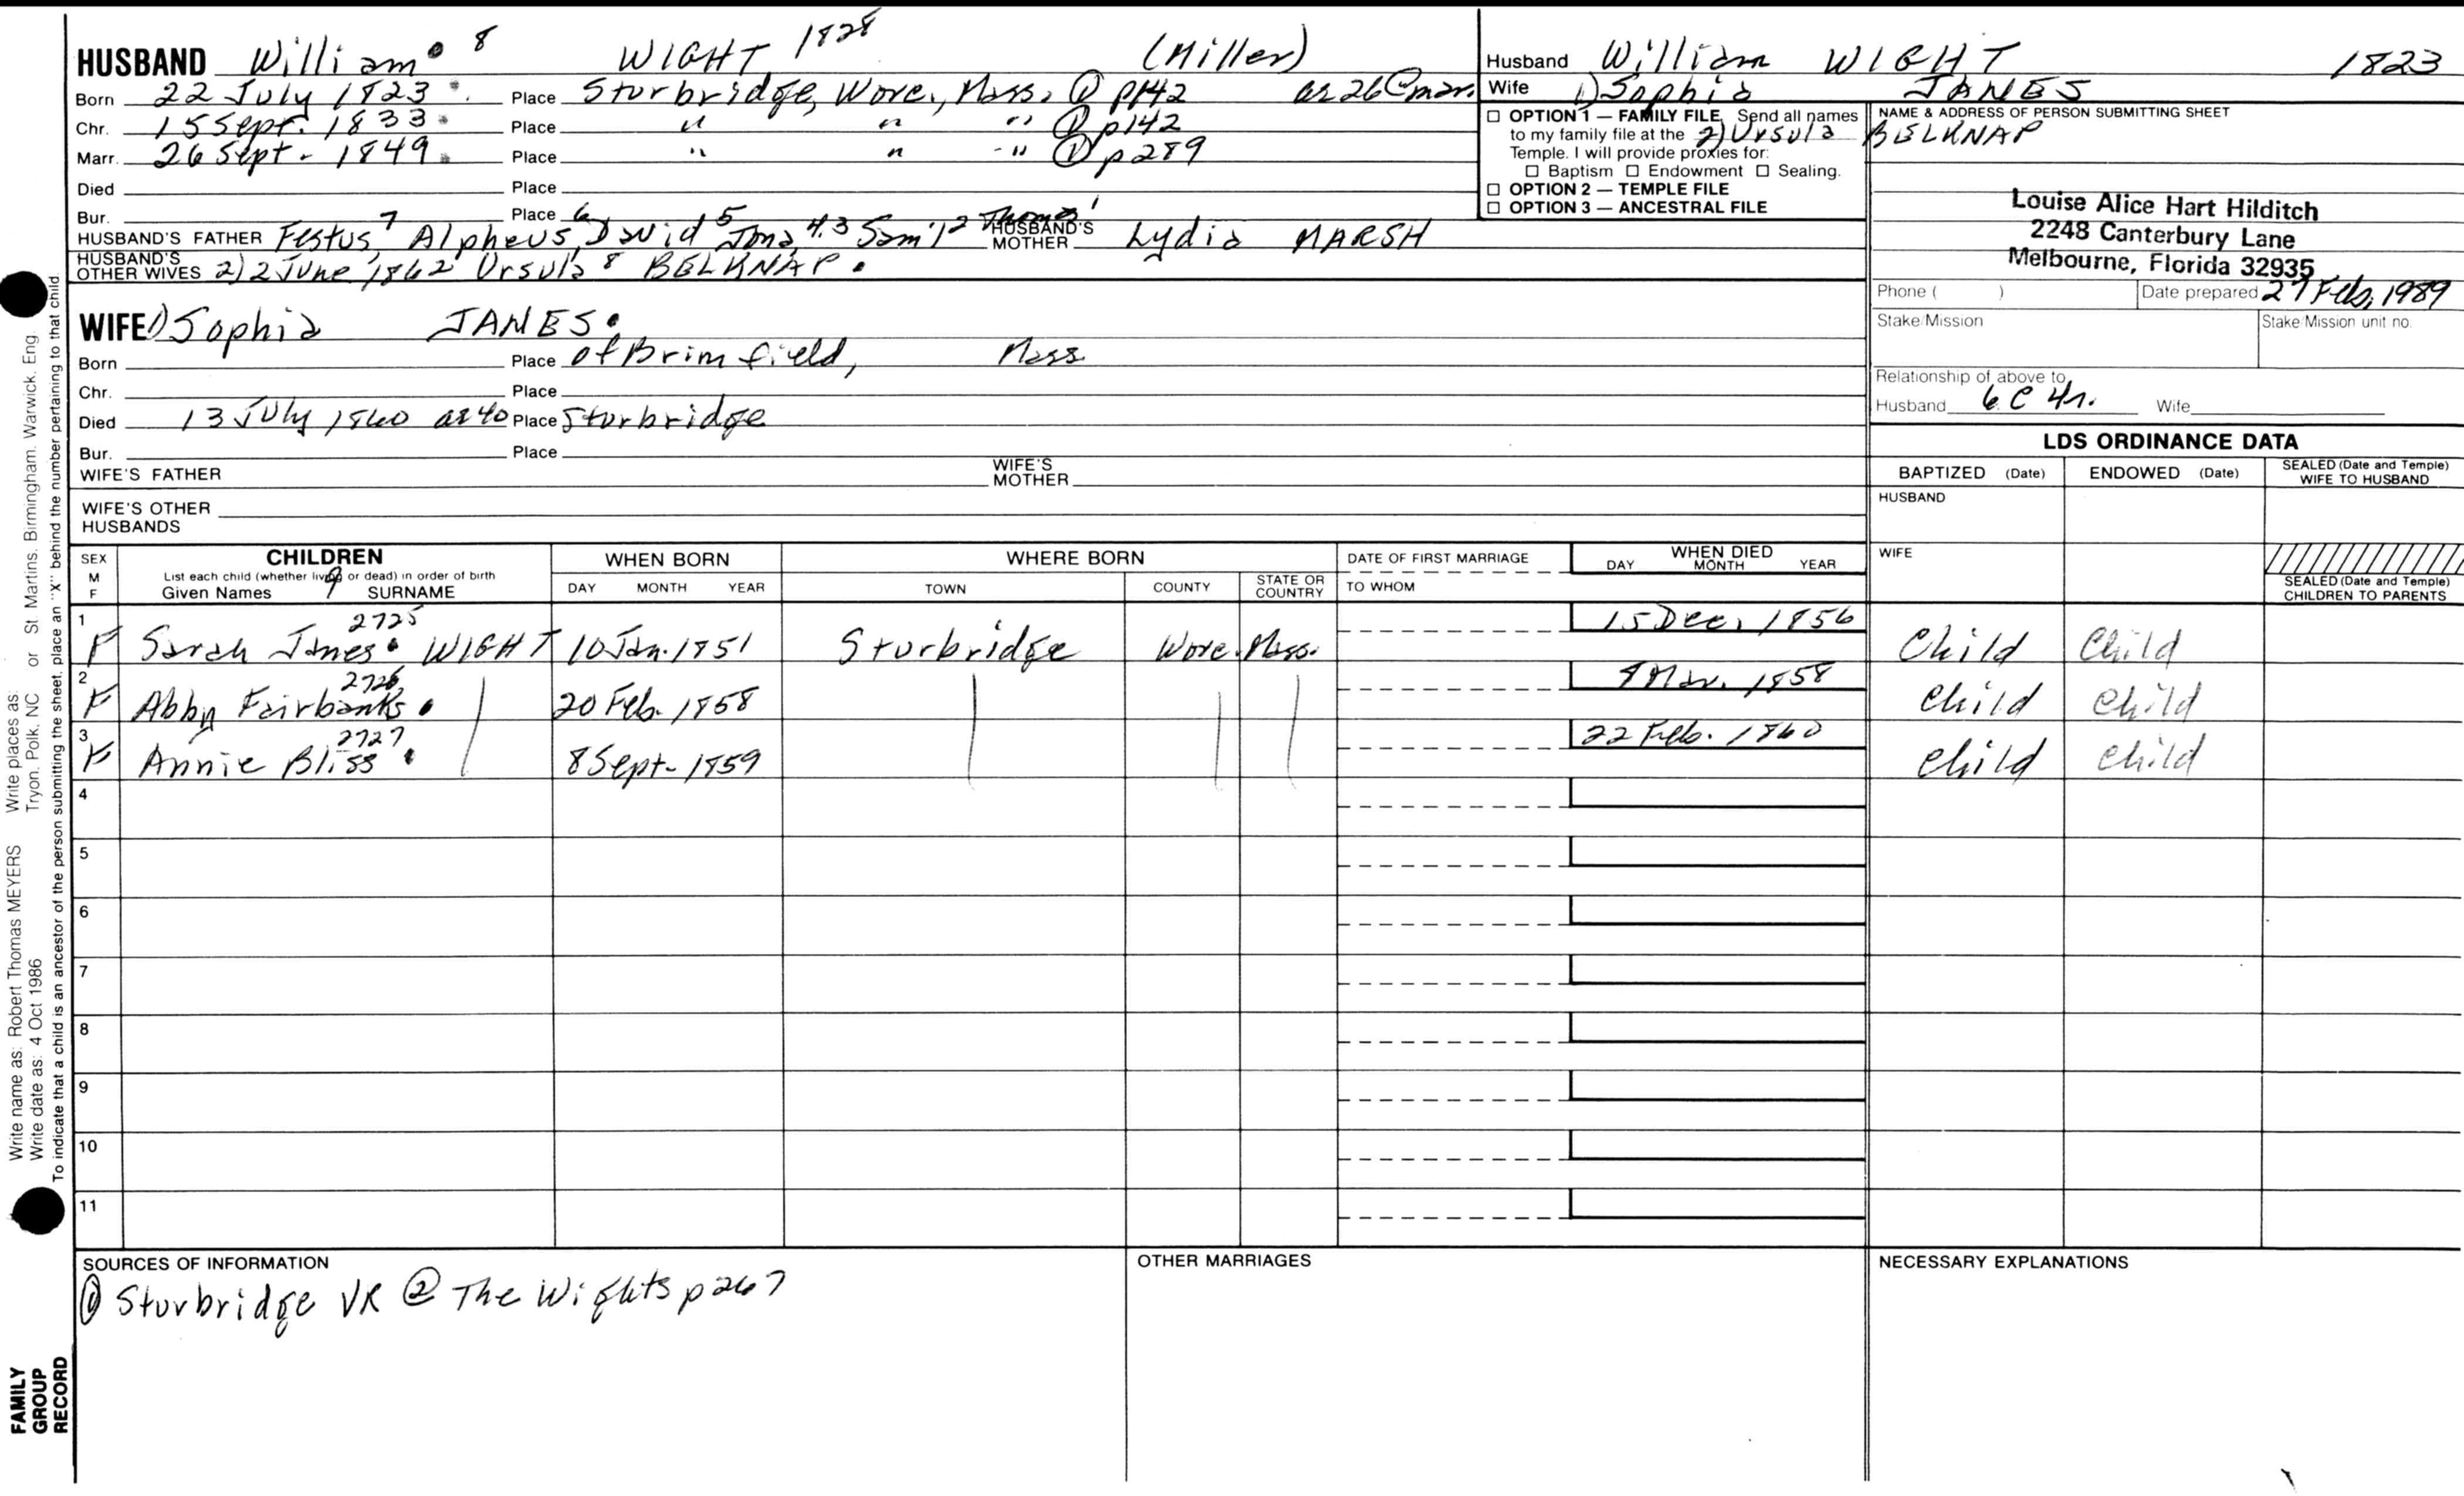 HUSBAND William 8 WIGHT 1828 (Miller)
Born 22 July 1823 Place Sturbridge, Worc., Mass. ① p142 ae 26 @ mar.
Chr. 15 Sept. 1833 Place " " " ① p142
Marr. 26 Sept. 1849 Place " " " ① p289
Died Place
Bur. Place
HUSBAND'S FATHER Festus, 7 Alpheus, 6 David 5 Jona. 4.3 Sam'l 2 Thomas 1 HUSBAND'S MOTHER Lydia MARSH
HUSBAND'S OTHER WIVES 2) 2 June 1862 Ursula 8 BELKNAP.
Husband William WIGHT 1823
Wife 1) Sophia JANES
2) Ursula BELKNAP
☐ OPTION 1 — FAMILY FILE Send all names
to my family file at the
Temple. I will provide proxies for:
☐ Baptism ☐ Endowment ☐ Sealing.
☐ OPTION 2 — TEMPLE FILE
☐ OPTION 3 — ANCESTRAL FILE
NAME & ADDRESS OF PERSON SUBMITTING SHEET
Louise Alice Hart Hilditch
2248 Canterbury Lane
Melbourne, Florida 32935
Phone ( ) Date prepared 27 Feb, 1989
Stake/Mission Stake/Mission unit no.
Relationship of above to
Husband 6C 4r. Wife
WIFE 1) Sophia JANES
Born Place of Brimfield, Mass
Chr. Place
Died 13 July 1860 ae 40 Place Sturbridge
Bur. Place
WIFE'S FATHER WIFE'S MOTHER
WIFE'S OTHER
HUSBANDS
LDS ORDINANCE DATA
BAPTIZED (Date) ENDOWED (Date) SEALED (Date and Temple) WIFE TO HUSBAND
HUSBAND
WIFE
SEALED (Date and Temple)
CHILDREN TO PARENTS
SEX M F CHILDREN WHEN BORN WHERE BORN DATE OF FIRST MARRIAGE WHEN DIED
List each child (whether living or dead) in order of birth
Given Names 9 SURNAME DAY MONTH YEAR TOWN COUNTY STATE OR COUNTRY TO WHOM DAY MONTH YEAR
1 F Sarah Janes 2725 WIGHT 10 Jan. 1851 Sturbridge Worc. Mass. 15 Dec. 1856 Child Child
2 F Abby Fairbanks 2726 20 Feb. 1858 9 Mar. 1858 Child Child
3 F Annie Bliss 2727 8 Sept. 1859 22 Feb. 1860 Child Child
4
5
6
7
8
9
10
11
SOURCES OF INFORMATION
① Sturbridge VR ② The Wights p267
OTHER MARRIAGES
NECESSARY EXPLANATIONS
Write name as: Robert Thomas MEYERS Write places as: or St Martins. Birmingham. Warwick. Eng.
Write date as: 4 Oct 1986 Tryon. Polk. NC
To indicate that a child is an ancestor of the person submitting the sheet, place an "X" behind the number pertaining to that child.
FAMILY
GROUP
RECORD